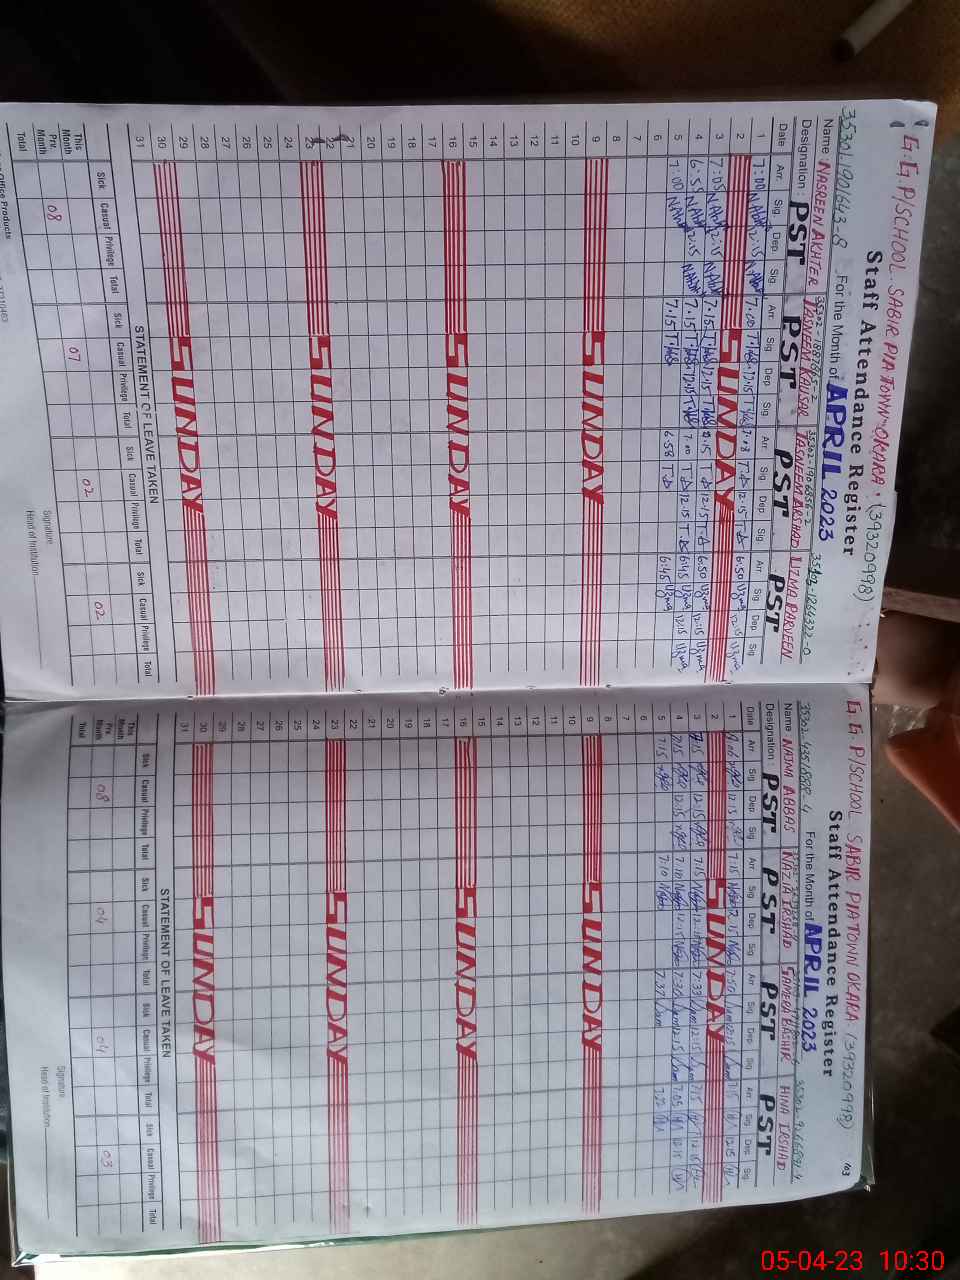 G.G.P/SCHOOL SABIR PIA TOWN OKARA. (39320998)
Staff Attendance Register
35301-1901643-8 For the Month of APRIL 2023
Name NASREEN AKHTER TASNEEM KAUSAR TASNEEM ARSHAD UZMA PARVEEN
Designation: PST PST PST PST
Date Arr. Sig. Dep. Sig. Arr. Sig. Dep. Sig. Arr. Sig. Dep. Sig. Arr. Sig. Dep. Sig.
1 7:00 12:15 7.00 12.15 7.08 T.A 12.15 T.A 6:50 Uzma 12:15 Uzma
2 SUNDAY
3 7:05 12:15 7.15 12.15 T.A 12.15 T.A 6:50 Uzma 12:15 Uzma
4 6:55 12:15 7.15 12.15 7.00 T.A 12.15 T.A 6:45 Uzma 12:15 Uzma
5 7:00 7.15 6.58 T.A 6:45 Uzma
6
7
8
9 SUNDAY
10
11
12
13
14
15
16 SUNDAY
17
18
19
20
21
22
23 SUNDAY
24
25
26
27
28
29
30 SUNDAY
31
STATEMENT OF LEAVE TAKEN
Sick Casual Privilege Total Sick Casual Privilege Total Sick Casual Privilege Total Sick Casual Privilege Total
This Month
Prv. Month 08 07 02 02
Total
Signature
Head of Institution
Office Products
G.G.P/SCHOOL SABIR PIA TOWN OKARA (39320998)
103
Staff Attendance Register
For the Month of APRIL 2023
Name NAJMA ABBAS NAZIA IRSHAD SAMERA BASHIR HINA IRSHAD
Designation: PST PST PST PST
Date Arr. Sig. Dep. Sig. Arr. Sig. Dep. Sig. Arr. Sig. Dep. Sig. Arr. Sig. Dep. Sig.
1 12:15 7:15 12.15 7:50 12:15 7:15 12:15
2 SUNDAY
3 7:15 12:15 7:15 7:33 12:15 7:15 12:15
4 7:15 12:15 7:10 12:15 7:30 12:15 7:05 12:15
5 7:15 7:10 7.37
6
7
8
9 SUNDAY
10
11
12
13
14
15
16 SUNDAY
17
18
19
20
21
22
23 SUNDAY
24
25
26
27
28
29
30 SUNDAY
31
STATEMENT OF LEAVE TAKEN
Sick Casual Privilege Total Sick Casual Privilege Total Sick Casual Privilege Total Sick Casual Privilege Total
This Month
Prv. Month 08 04 04 03
Total
Signature
Head of Institution
05-04-23 10:30